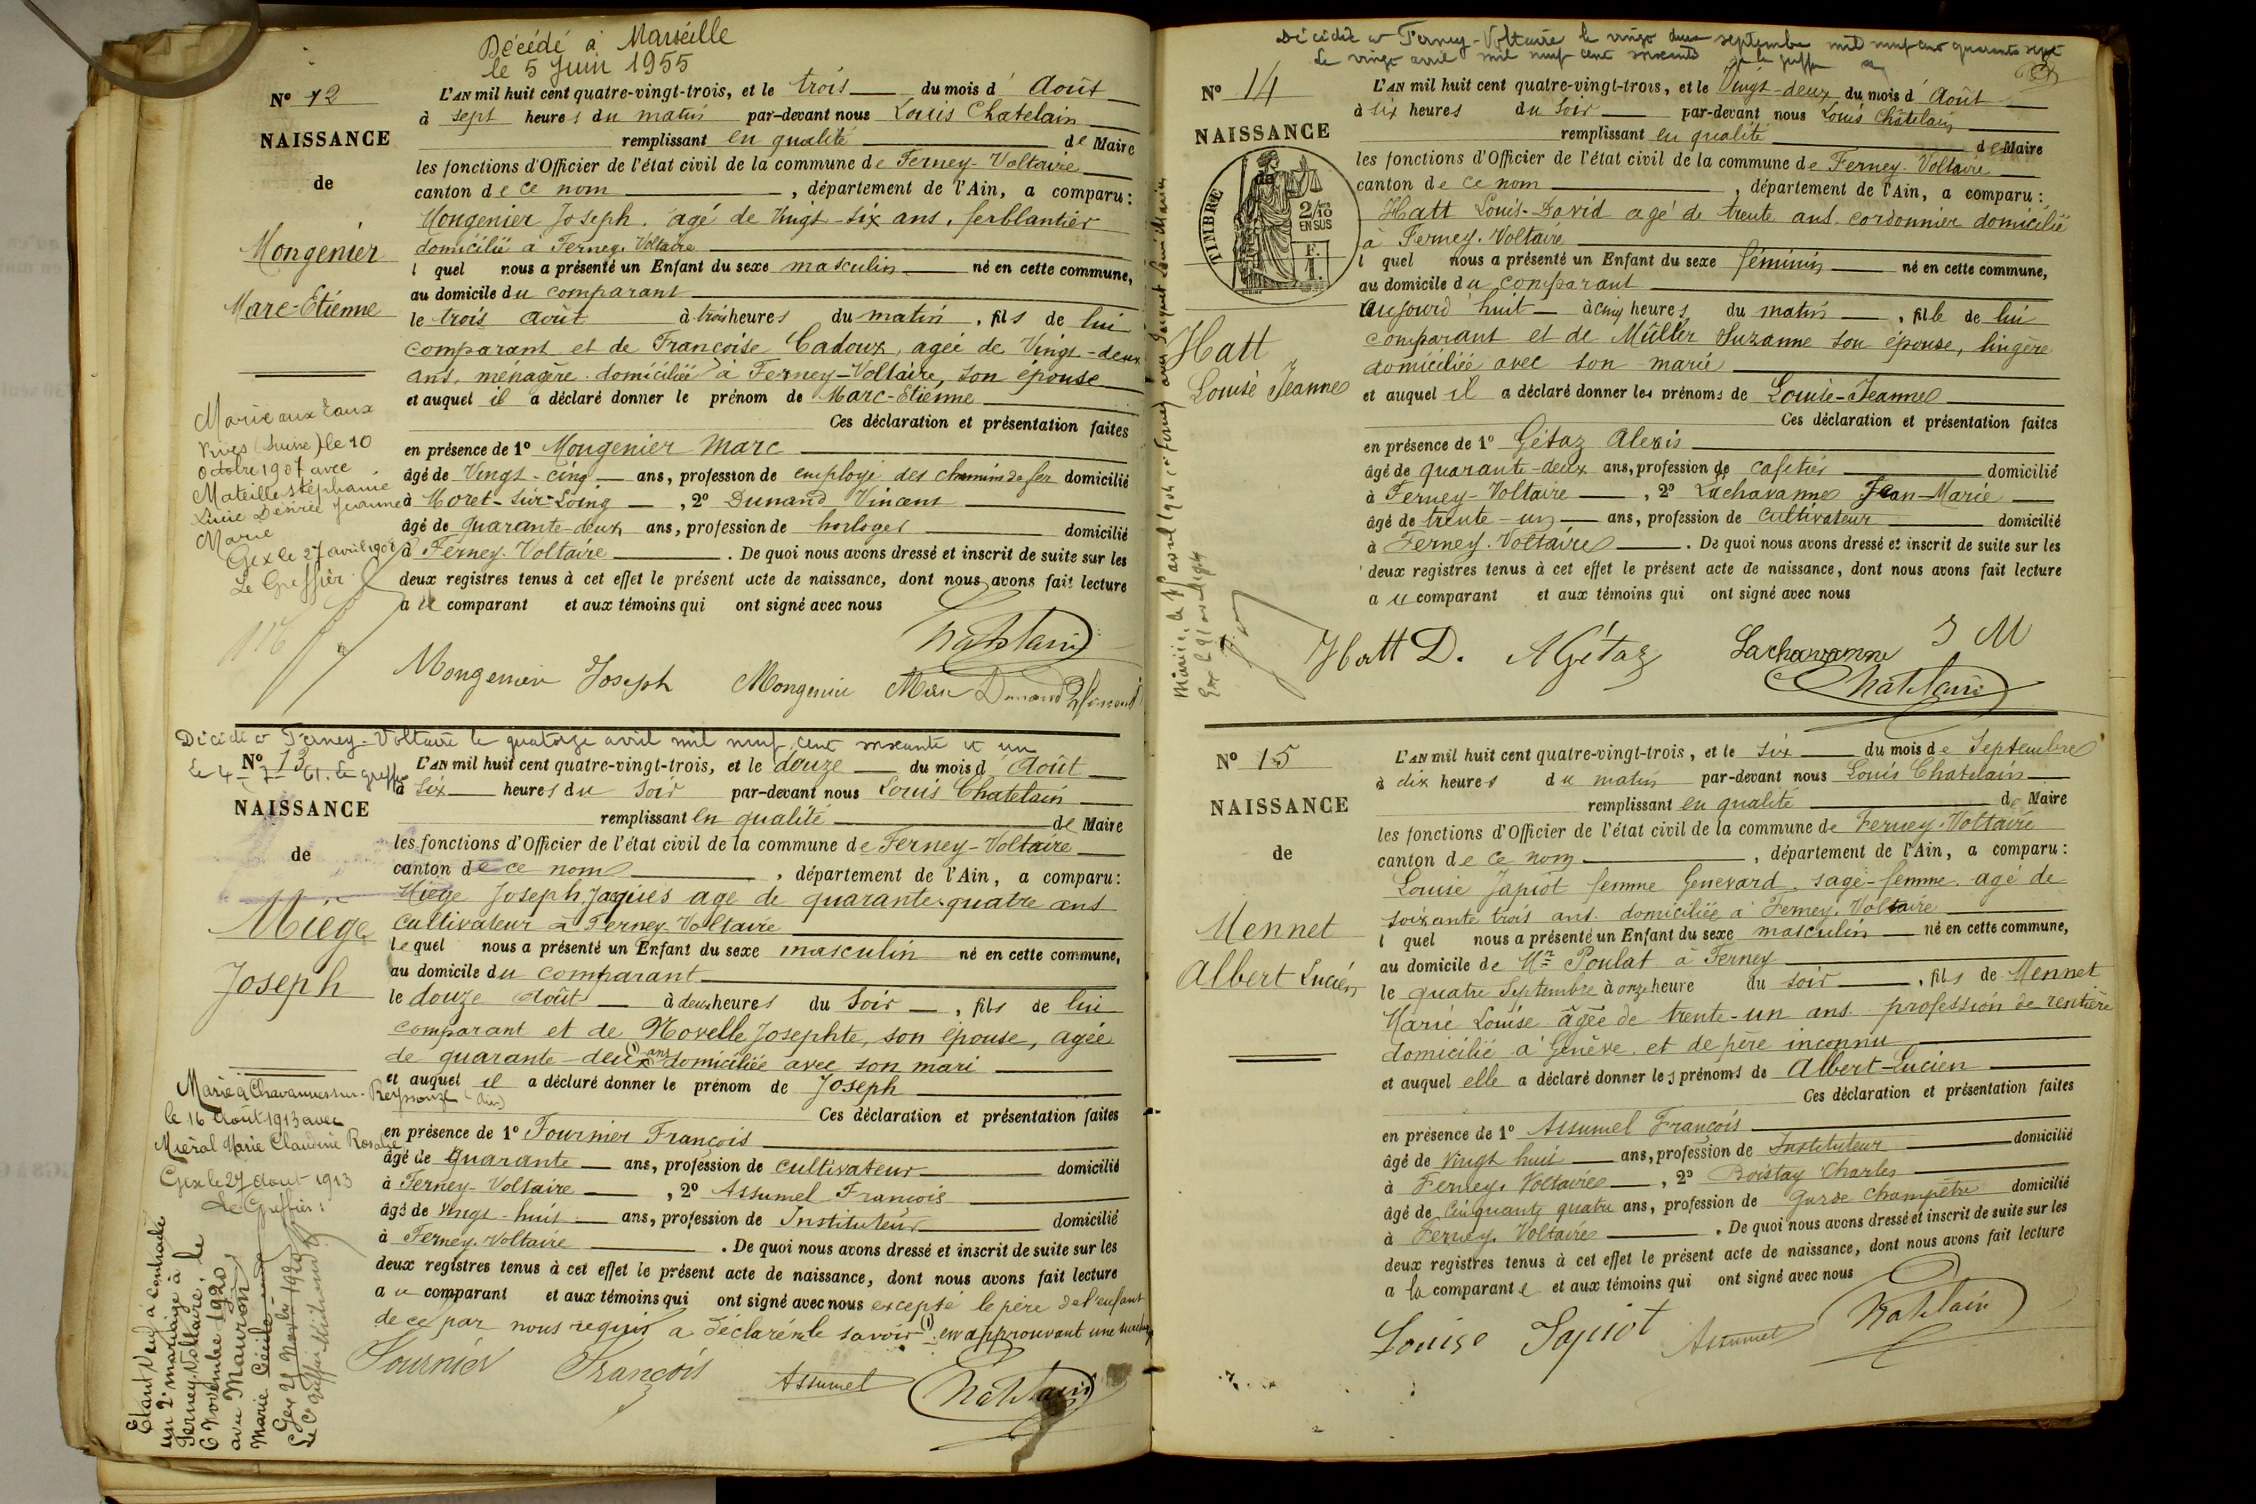 Décédé à Marseille
le 5 Juin 1955
N° 12
NAISSANCE
de
Mongenier
Marc-Etienne
L'AN mil huit cent quatre-vingt-trois, et le trois du mois d' Août
à sept heures du matin par-devant nous Louis Chatelain
remplissant en qualité de Maire
les fonctions d'Officier de l'état civil de la commune de Ferney-Voltaire
canton de ce nom, département de l'Ain, a comparu:
Mongenier Joseph. agé de Vingt-six ans, ferblantier
domicilié à Ferney-Voltaire
l quel nous a présenté un Enfant du sexe masculin né en cette commune,
au domicile du comparant
le trois août à trois heures du matin, fils de lui
comparant et de Françoise Cadoux, agée de Vingt-deux
ans, ménagère domiciliée à Ferney-Voltaire, son épouse
et auquel il a déclaré donner le prénom de Marc-Etienne
Ces déclaration et présentation faites
en présence de 1° Mongenier Marc
âgé de Vingt-cinq ans, profession de employé des chemins de fer domicilié
à Moret-Sur-Loing, 2° Dunand Vincent
âgé de quarante-deux ans, profession de horloger domicilié
à Ferney-Voltaire. De quoi nous avons dressé et inscrit de suite sur les
deux registres tenus à cet effet le présent acte de naissance, dont nous avons fait lecture
a u comparant et aux témoins qui ont signé avec nous
Chatelain
Mongenier Joseph Mongenier Marc Dunand Vincent
Marié aux Eaux
Vives (Suisse) le 10
Octobre 1907 avec
Mateille Stéphanie
Désirée Jeanne
Marie
Gex le 27 avril 1908
Le Greffier
Décédé à Ferney-Voltaire le quatorze avril mil neuf cent soixante et un
le 4-7-61. Le greffier
N° 13
NAISSANCE
de
Miège
Joseph
L'AN mil huit cent quatre-vingt-trois, et le douze du mois d' Août
à six heures du soir par-devant nous Louis Chatelain
remplissant en qualité de Maire
les fonctions d'Officier de l'état civil de la commune de Ferney-Voltaire
canton de ce nom, département de l'Ain, a comparu:
Miège Joseph Jaques age de quarante-quatre ans
cultivateur à Ferney-Voltaire
lequel nous a présenté un Enfant du sexe masculin né en cette commune,
au domicile du comparant
le douze Août à deux heures du soir, fils de lui
comparant et de Novelle Josephte, son épouse, agée
de quarante-deux (1) ans domiciliée avec son mari
et auquel il a déclaré donner le prénom de Joseph
Ces déclaration et présentation faites
en présence de 1° Fournier François
âgé de quarante ans, profession de cultivateur domicilié
à Ferney-Voltaire, 2° Assumel François
âgé de vingt-huit ans, profession de Instituteur domicilié
à Ferney-Voltaire. De quoi nous avons dressé et inscrit de suite sur les
deux registres tenus à cet effet le présent acte de naissance, dont nous avons fait lecture
a u comparant et aux témoins qui ont signé avec nous excepté le père de l'enfant
de ce par nous requis a déclaré ne le savoir (1) en approuvant une
Fournier François Assumel Chatelain
Marié à Chavannes-sur-
Reyssouze (Ain)
le 16 Août 1913 avec
Miéral Marie Claudine Rosalie
Gex le 27 Août 1913
Le Greffier:
Etant Veuf a contracté
un 2e mariage à
Ferney-Voltaire, le
6 Novembre 1920
avec Mauron
Marie Cécile
Gex
Le Greffier
Décédée à Ferney-Voltaire le vingt deux septembre mil neuf cent quarante sept
Le vingt avril mil neuf cent soixante
N° 14
NAISSANCE
de
TIMBRE
2/10
EN SUS
F.
1.
Hatt
Louise Jeanne
L'AN mil huit cent quatre-vingt-trois, et le Vingt-deux du mois d' Août
à six heures du soir par-devant nous Louis Châtelain
remplissant en qualité de Maire
les fonctions d'Officier de l'état civil de la commune de Ferney-Voltaire
canton de ce nom, département de l'Ain, a comparu:
Hatt Louis-David agé de trente ans cordonnier domicilié
à Ferney-Voltaire
l quel nous a présenté un Enfant du sexe féminin né en cette commune,
au domicile du comparant
aujourd'huit à cinq heures du matin, fille de lui
comparant et de Müller Suzanne son épouse, lingère
domiciliée avec son marié
et auquel il a déclaré donner les prénoms de Louise-Jeanne
Ces déclaration et présentation faites
en présence de 1° Gétaz Alexis
âgé de quarante-deux ans, profession de cafetier domicilié
à Ferney-Voltaire, 2° Lachavanne Jean-Marie
âgé de trente-un ans, profession de cultivateur domicilié
à Ferney-Voltaire. De quoi nous avons dressé et inscrit de suite sur les
deux registres tenus à cet effet le présent acte de naissance, dont nous avons fait lecture
a u comparant et aux témoins qui ont signé avec nous
Hatt D. A Gétaz Lachavanne J M
Chatelain
N° 15
NAISSANCE
de
Mennet
Albert Lucien
L'AN mil huit cent quatre-vingt-trois, et le six du mois de Septembre
à dix heures du matin par-devant nous Louis Chatelain
remplissant en qualité de Maire
les fonctions d'Officier de l'état civil de la commune de Ferney-Voltaire
canton de ce nom, département de l'Ain, a comparu:
Louise Japiot femme Genevard sage-femme agé de
soixante trois ans domiciliée à Ferney-Voltaire
l quel nous a présenté un Enfant du sexe masculin né en cette commune,
au domicile de Mr Poulat à Ferney
le quatre Septembre à onze heure du soir, fils de Mennet
Marie Louise âgée de trente-un ans profession de rentière
domicilié à Genève et de père inconnu
et auquel elle a déclaré donner les prénoms de Albert-Lucien
Ces déclaration et présentation faites
en présence de 1° Assumel François
âgé de vingt huit ans, profession de Instituteur domicilié
à Ferney-Voltaire, 2° Boistay Charles
âgé de Cinquante quatre ans, profession de garde champêtre domicilié
à Ferney-Voltaire. De quoi nous avons dressé et inscrit de suite sur les
deux registres tenus à cet effet le présent acte de naissance, dont nous avons fait lecture
a la comparante et aux témoins qui ont signé avec nous
Louise Japiot Assumel Chatelain